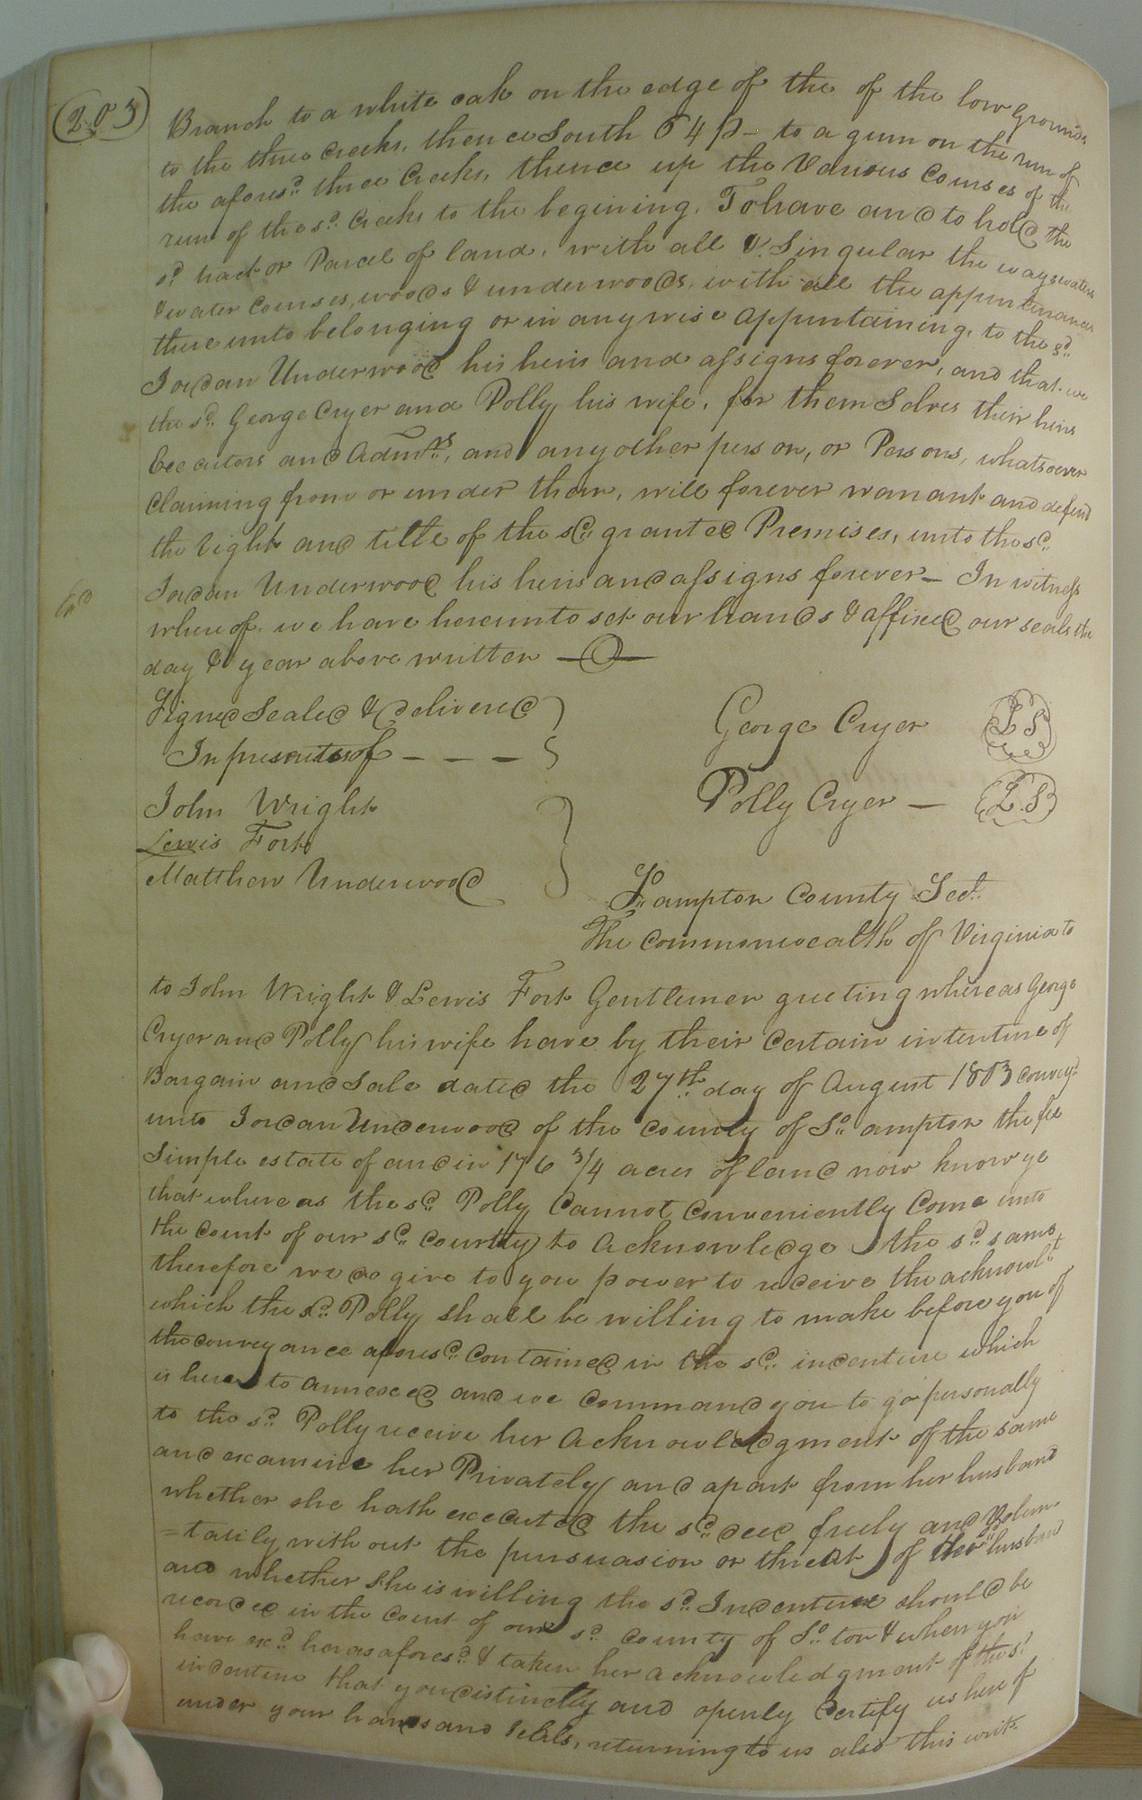 203
Branch to a white oak on the edge of the of the low grounds
to the three Creeks, thence South 64 p - to a gum on the run of
the afores.d three Creeks, thence up the Various Courses of the
run of the s.d Creeks to the begining. To have and to hold the
s.d tract or Parcel of land, with all & Singular the ways waters
& water Courses, woods & underwoods, with all the appurtenances
there unto belonging or in any wise appurtaining, to the s.d
Jordan Underwood his heirs and assigns forever, and that we
the s.d George Cryer and Polly his wife, for themSelves their heirs
Executors and Adm.rs, and any other person, or Persons, whatsoever
Claiming from or under them, will forever warrant and defend
the right and title of the s.d granted Premises, unto the s.d
Jordan Underwood his heirs and assigns forever - In witness
where of we have hereunto set our hands & affixed our seals the
day & year above written
Signed Sealed & delivered
In presents of - - -
George Cryer LS
Polly Cryer - L.S
John Wright
Lewis Fort
Matthew Underwood
So.ampton County Sct.
The Commonwealth of Virginia to
to John Wright & Lewis Fort Gentlemen greeting whereas George
Cryer and Polly his wife have by their Certain intenture of
Bargain and Sale dated the 27th day of August 1803 convey.d
unto Jordan Underwood of the County of So.ampton the fee
Simple estate of and in 176 3/4 acres of land now know ye
that where as the s.d Polly Cannot Conveniently Come into
the Court of our s.d County to Acknowledge the s.d same
therefore we do give to you power to receive the acknowl.t
which the s.d Polly shall be willing to make before you of
the conveyance afores.d Contained in the s.d indenture which
is here to annexed and we Command you to go personally
to the s.d Polly receive her Acknowledgment of the same
and examine her Privately and apart from her husband
whether she hath executed the s.d deed freely and Volun
=tarily with out the pursuasion or threat of her husband
and whether She is willing the s.d Indenture should be
recorded in the Court of our s.d County of So.ton & when you
have ex.d her as afores.d & taken her acknowledgment of the s.d
indenture that you distinctly and openly Certify us here of
under your hands and Seals, returning to us also this writ